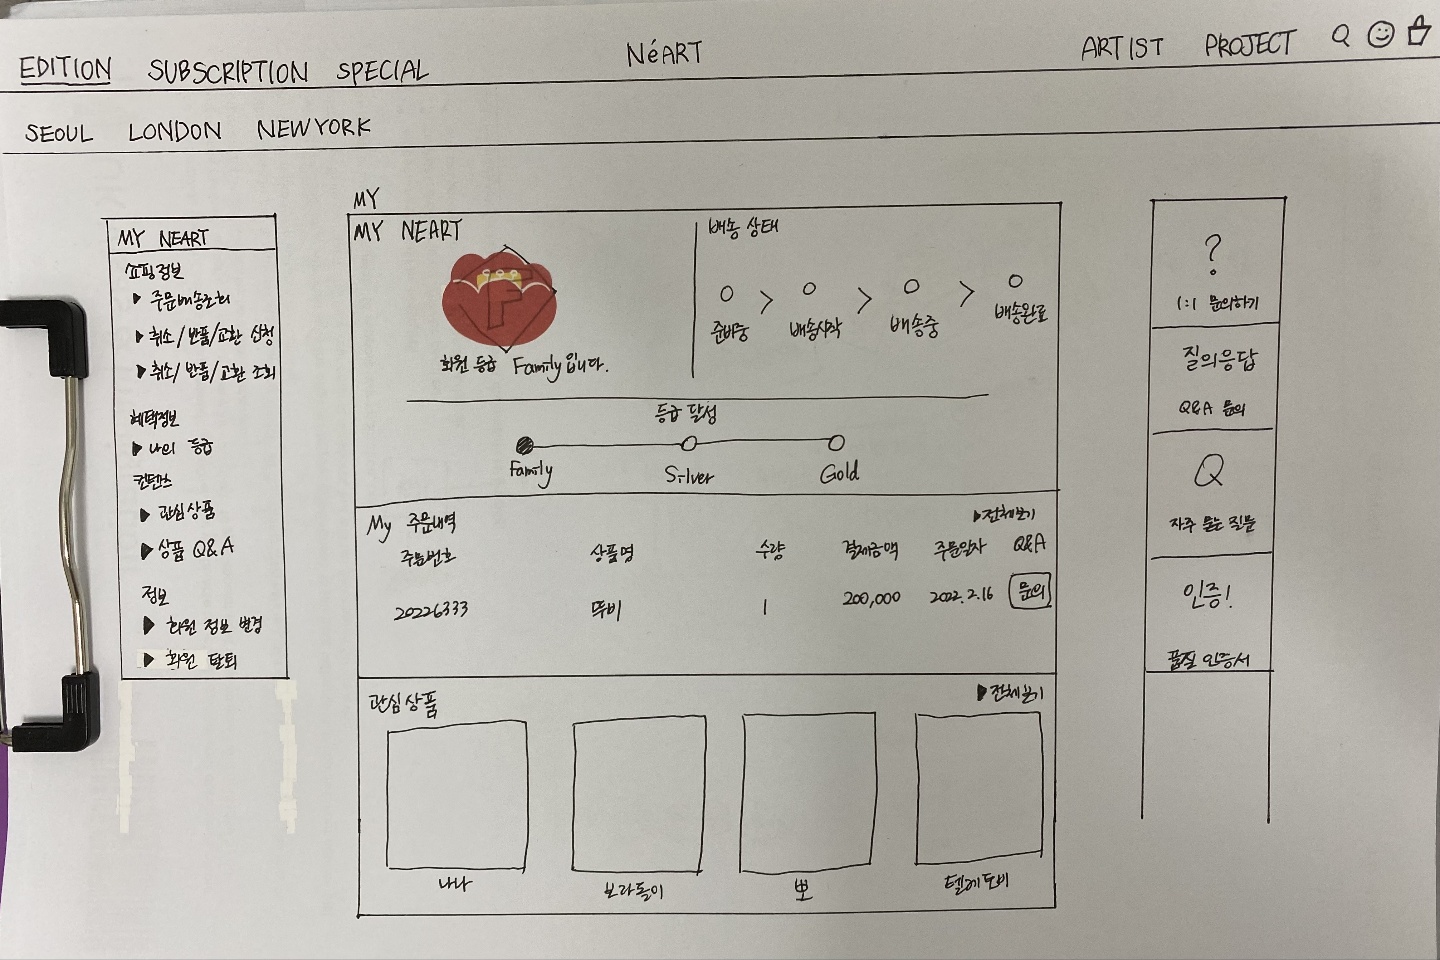 EDITION SUBSCRIPTION SPECIAL NéART ARTIST PROJECT
SEOUL LONDON NEWYORK
MY NEART
쇼핑정보
▶ 주문배송조회
▶ 취소/반품/교환 신청
▶ 취소/반품/교환 조회
혜택정보
▶ 나의 등급
컨텐츠
▶ 관심상품
▶ 상품 Q&A
정보
▶ 회원 정보 변경
▶ 회원 탈퇴
MY
MY NEART
F
회원 등급 Family입니다.
배송 상태
준비중 > 배송시작 > 배송중 > 배송완료
등급 달성
Family Silver Gold
My 주문내역 ▶전체보기
주문번호 상품명 수량 결제금액 주문일자 Q&A
20226333 뚜비 1 200,000 2022.2.16 문의
관심상품 ▶전체보기
나나 보라돌이 뽀 텔레토비
?
1:1 문의하기
질의응답
Q&A 문의
Q
자주 묻는 질문
인증!
품질 인증서